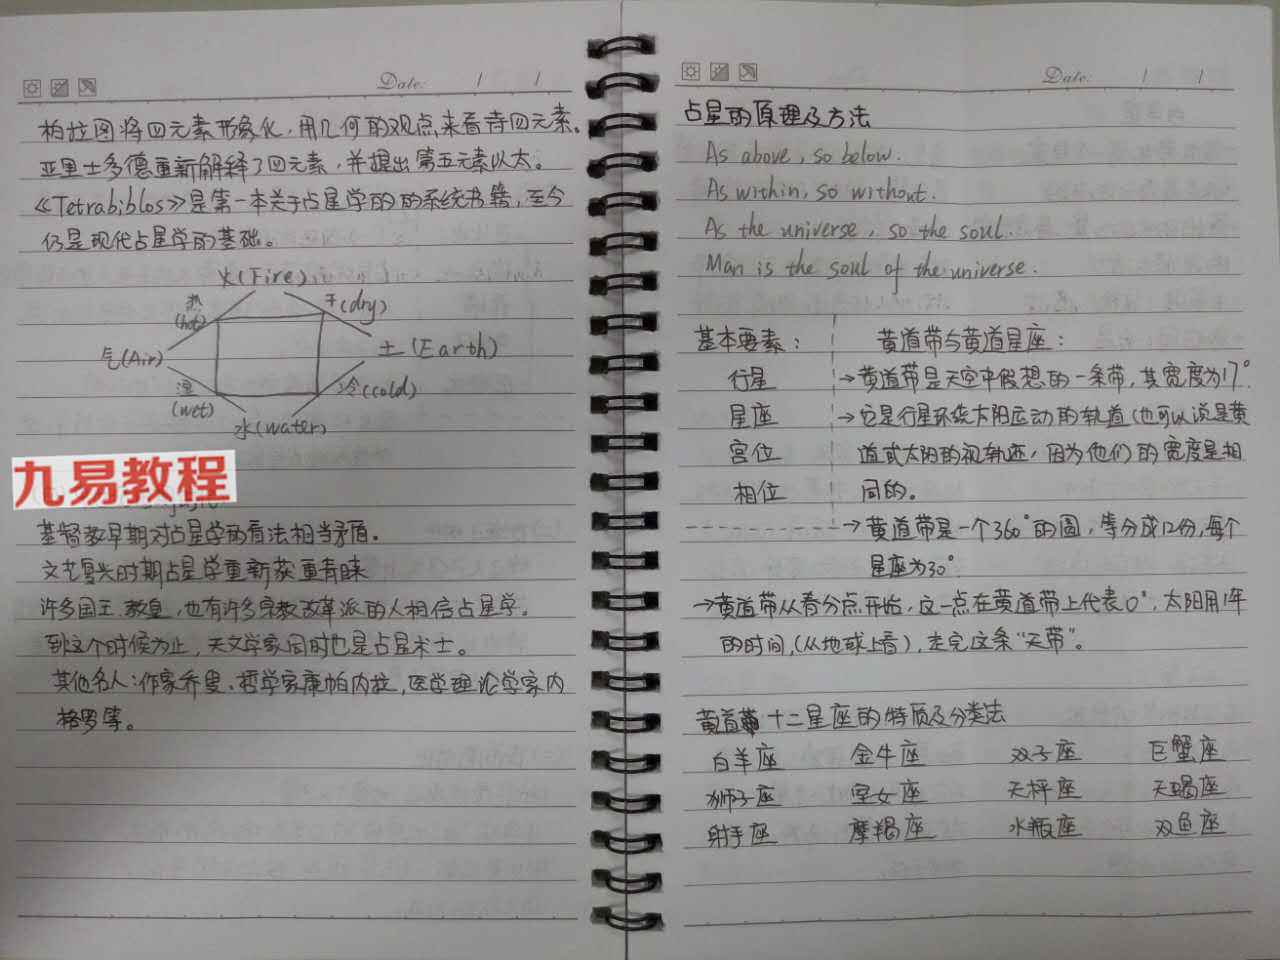 Date: / /
柏拉图将四元素形象化，用几何的观点来看待四元素。
亚里士多德重新解释了四元素，并提出第五元素以太。
《Tetrabiblos》是第一本关于占星学的的系统书籍，至今
仍是现代占星学的基础。
火(Fire)
热
(hot)
干(dry)
气(Air)
土(Earth)
湿
(wet)
冷(cold)
水(water)
九易教程
基督教早期对占星学的看法相当矛盾。
文艺复兴时期占星学重新获重青睐
许多国王、教皇，也有许多宗教改革派的人相信占星学。
到这个时候为止，天文学家同时也是占星术士。
其他名人：作家乔叟、哲学家康帕内拉，医学理论学家内
格罗等。
Date: / /
占星的原理及方法
As above, so below.
As within, so without.
As the universe, so the soul.
Man is the soul of the universe.
基本要素：
行星
星座
宫位
相位
黄道带与黄道星座：
→黄道带是天空中假想的一条带，其宽度为17°
→它是行星环绕太阳运动的轨道(也可以说是黄
道或太阳的视轨迹，因为他们的宽度是相
同的。
→黄道带是一个360°的圆，等分成12份，每个
星座为30°
→黄道带从春分点开始，这一点在黄道带上代表0°，太阳用1年
的时间，(从地球上看)，走完这条“天带”。
黄道带十二星座的特质及分类法
白羊座 金牛座 双子座 巨蟹座
狮子座 室女座 天秤座 天蝎座
射手座 摩羯座 水瓶座 双鱼座